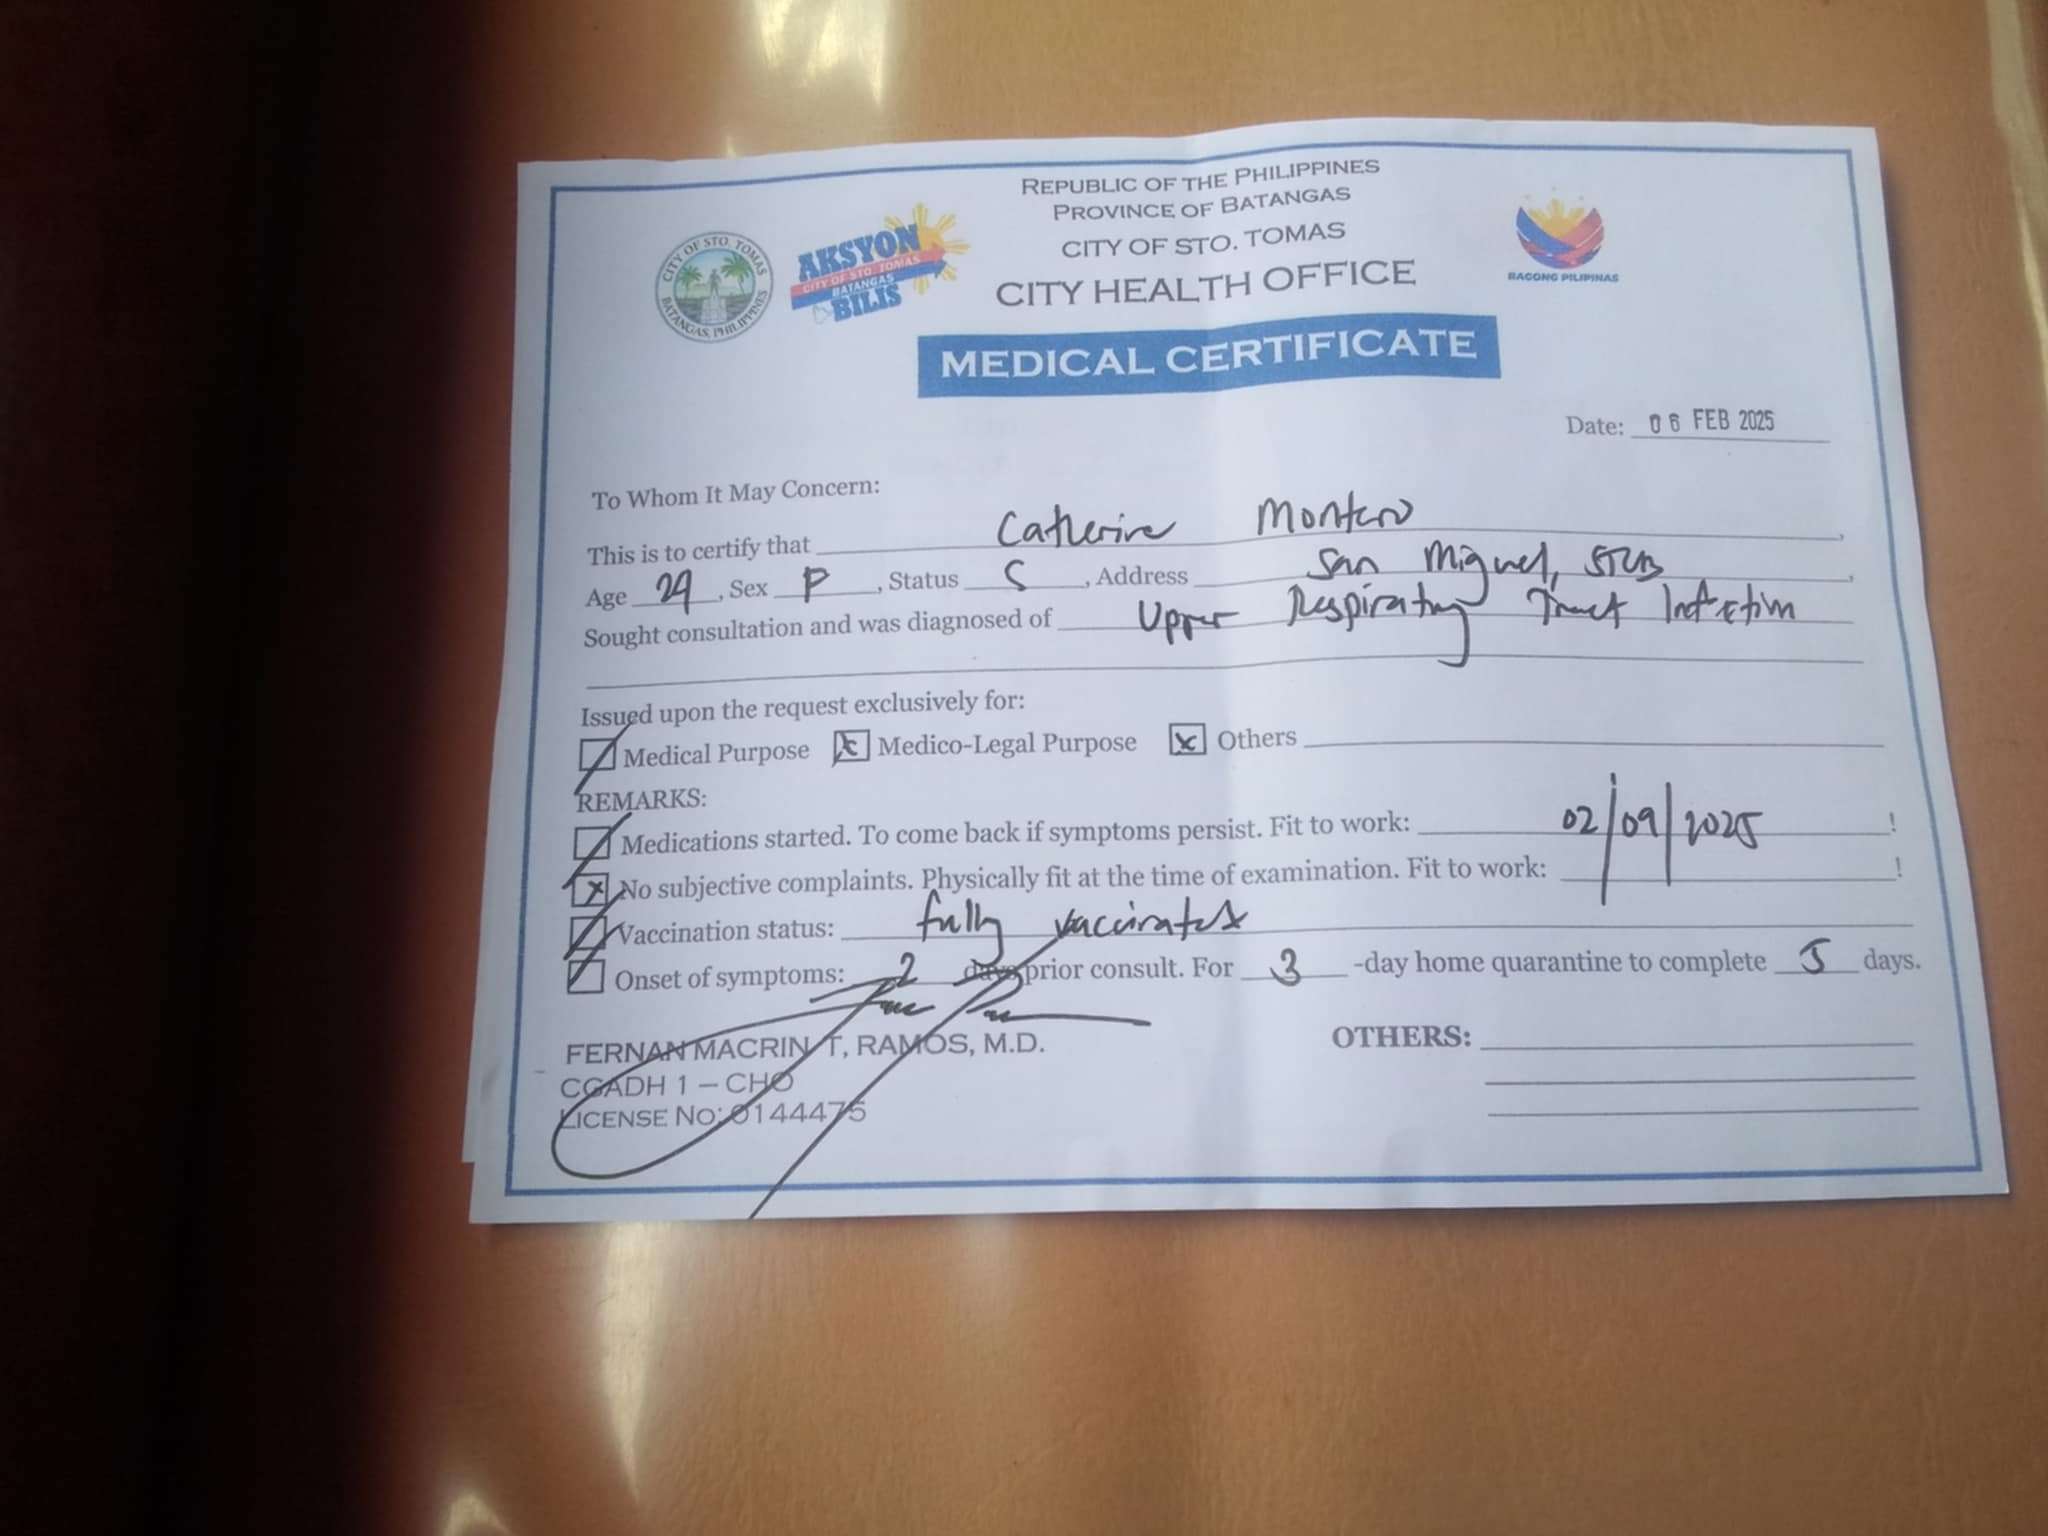 REPUBLIC OF THE PHILIPPINES
PROVINCE OF BATANGAS
CITY OF STO. TOMAS
CITY HEALTH OFFICE
CITY OF STO. TOMAS
BATANGAS, PHILIPPINES
AKSYON
CITY OF STO. TOMAS
BATANGAS
BILIS
BAGONG PILIPINAS
MEDICAL CERTIFICATE
Date: 06 FEB 2025
To Whom It May Concern:
This is to certify that Catherine Montero,
Age 29, Sex F, Status S, Address San Miguel, STCB,
Sought consultation and was diagnosed of Upper Respiratory Tract Infection
Issued upon the request exclusively for:
Medical Purpose x Medico-Legal Purpose x Others
REMARKS:
Medications started. To come back if symptoms persist. Fit to work: 02/09/2025!
x No subjective complaints. Physically fit at the time of examination. Fit to work: !
Vaccination status: fully vaccinated
Onset of symptoms: 2 days prior consult. For 3 -day home quarantine to complete 5 days.
FERNAN MACRIN T, RAMOS, M.D.
CGADH 1 – CHO
LICENSE NO: 0144475
OTHERS: